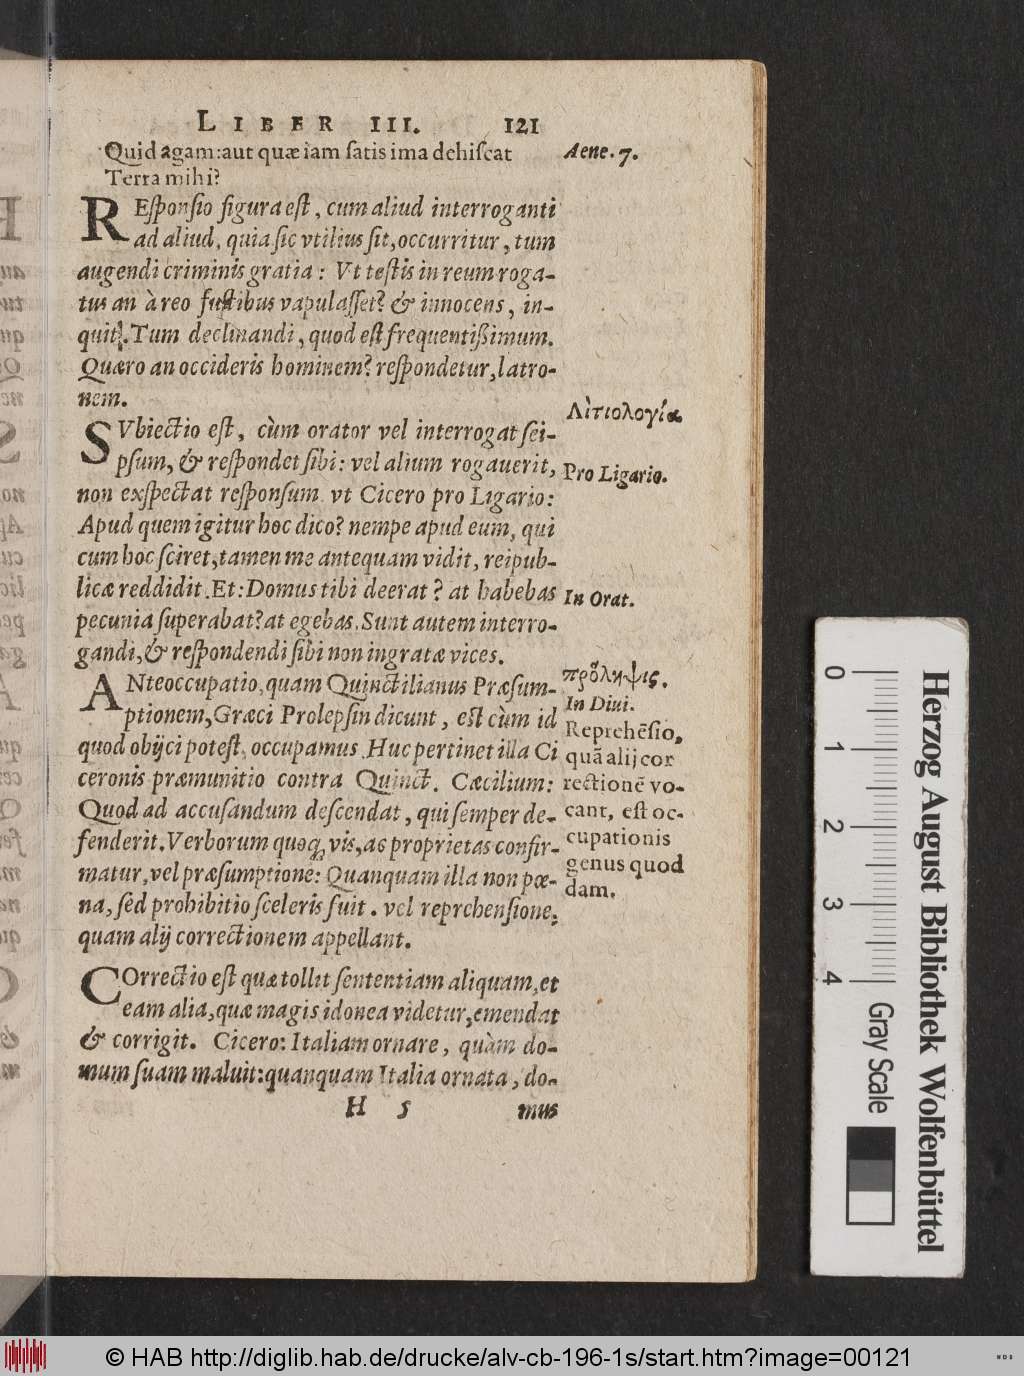 LIBER III. 121
Quid agam: aut quæ iam satis ima dehiscat
Aene. 7.
Terra mihi?
REsponsio figura est, cum aliud interroganti
ad aliud, quia sic vtilius sit, occurritur, tum
augendi criminis gratia: Vt testis in reum roga-
tus an à reo fustibus vapulasset? & innocens, in-
quit. Tum declinandi, quod est frequentißimum.
Quæro an occideris hominem? respondetur, latro-
nem.
Αἰτιολογία
SVbiectio est, cùm orator vel interrogat sei-
psum, & respondet sibi: vel alium rogauerit,
Pro Ligario.
non exspectat responsum. vt Cicero pro Ligario:
Apud quem igitur hoc dico? nempe apud eum, qui
cum hoc sciret, tamen me antequam vidit, reipub-
licæ reddidit. Et: Domus tibi deerat? at habebas
In Orat.
pecunia superabat? at egebas. Sunt autem interro-
gandi, & respondendi sibi non ingratæ vices.
ANteoccupatio, quam Quinctilianus Præsum-
πρόληψις.
ptionem, Græci Prolepsin dicunt, est cùm id
In Diui.
quod obijci potest, occupamus. Huc pertinet illa Ci
ceronis præmunitio contra Quinct. Cæcilium:
Quod ad accusandum descendat, qui semper de-
fenderit. Verborum quoq; vis, ac proprietas confir-
matur, vel præsumptione: Quanquam illa non pœ-
na, sed prohibitio sceleris fuit. vel reprehensione,
quam alij correctionem appellant.
Reprehẽsio,
quã alij cor
rectionẽ vo-
cant, est oc-
cupationis
genus quod
dam.
COrrectio est quæ tollit sententiam aliquam, et
eam alia, quæ magis idonea videtur, emendat
& corrigit. Cicero: Italiam ornare, quàm do-
mum suam maluit: quanquam Italia ornata, do-
H 5 mus
0 1 2 3 4
Gray Scale
Herzog August Bibliothek Wolfenbüttel
© HAB http://diglib.hab.de/drucke/alv-cb-196-1s/start.htm?image=00121